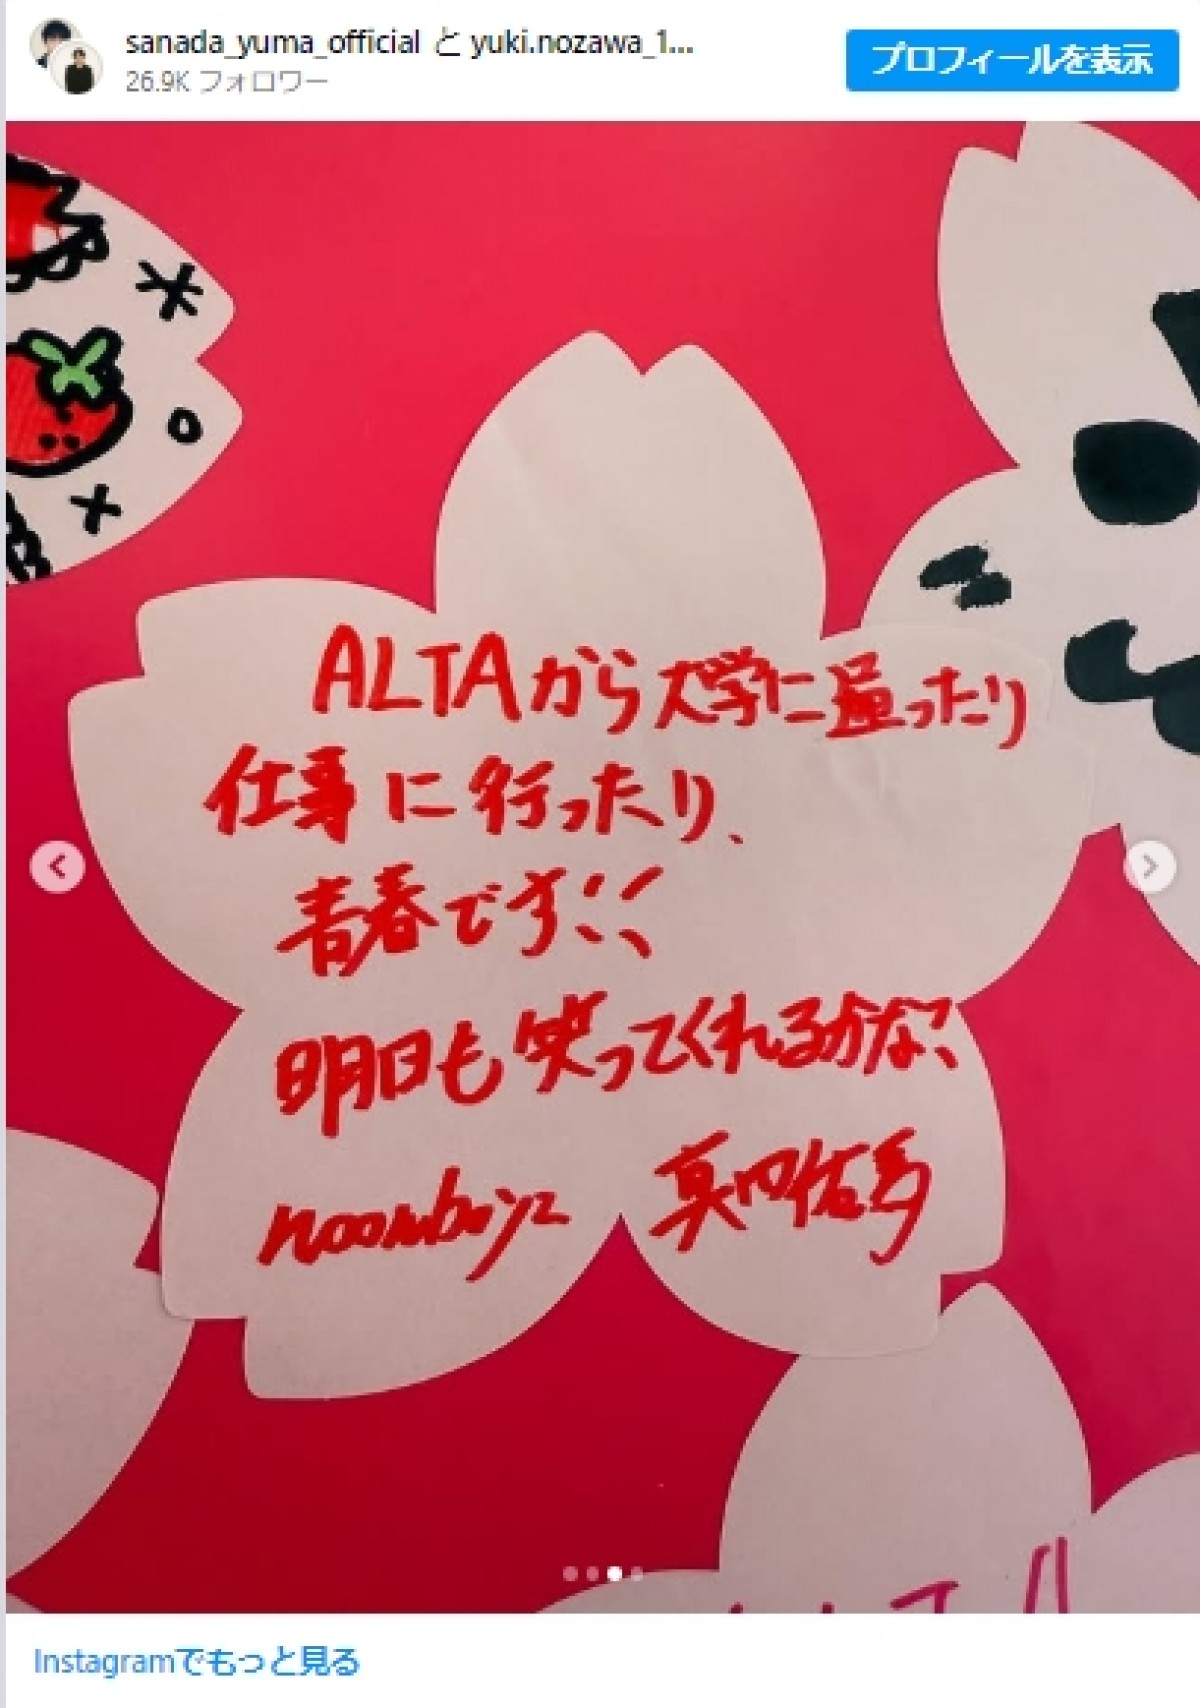 sanada_yuma_official と yuki.nozawa_1...
26.9K フォロワー
プロフィールを表示
ALTAから大学に通ったり
仕事に行ったり、
青春です!!
明日も笑ってくれるかな?
noonboyz 真田佑馬
Instagramでもっと見る